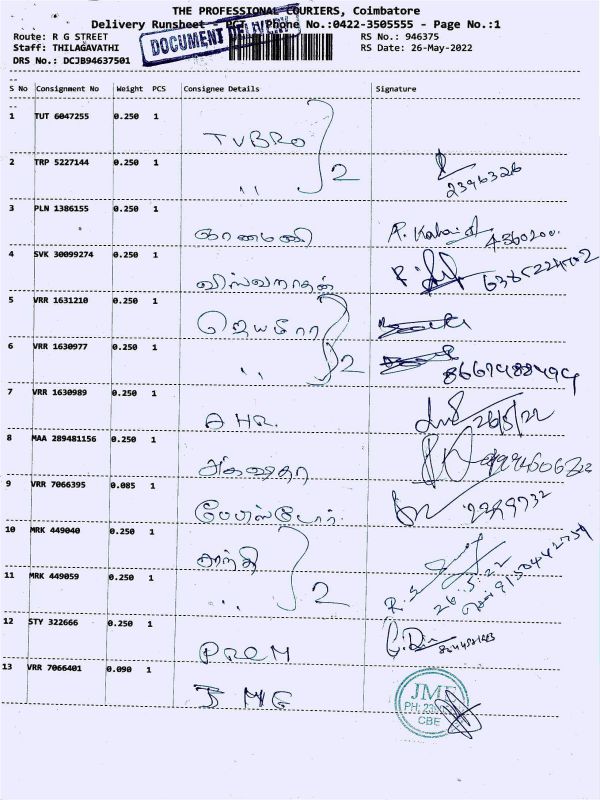 THE PROFESSIONAL COURIERS, Coimbatore
Delivery Runsheet - Phone No.:0422-3505555 - Page No.:1
DOCUMENT DELIVERY
Route: R G STREET RS No.: 946375
Staff: THILAGAVATHI RS Date: 26-May-2022
DRS No.: DCJB94637501
S No Consignment No Weight PCS Consignee Details Signature
1 TUT 6047255 0.250 1 TVBRO
2 TRP 5227144 0.250 1 ,, 2 2396326
3 PLN 1386155 0.250 1 ஞானமணி 4360200
4 SVK 30099274 0.250 1 விஸ்வநாதன்
5 VRR 1631210 0.250 1
6 VRR 1630977 0.250 1 ,, 2
7 VRR 1630989 0.250 1 AHR. 26/5/22
8 MAA 289481156 0.250 1
9 VRR 7066395 0.085 1
10 MRK 449040 0.250 1 சாந்தி 26.5.22
11 MRK 449059 0.250 1 ,, 2
12 STY 322666 0.250 1 PREM
13 VRR 7066401 0.090 1 JME
JME
CBE